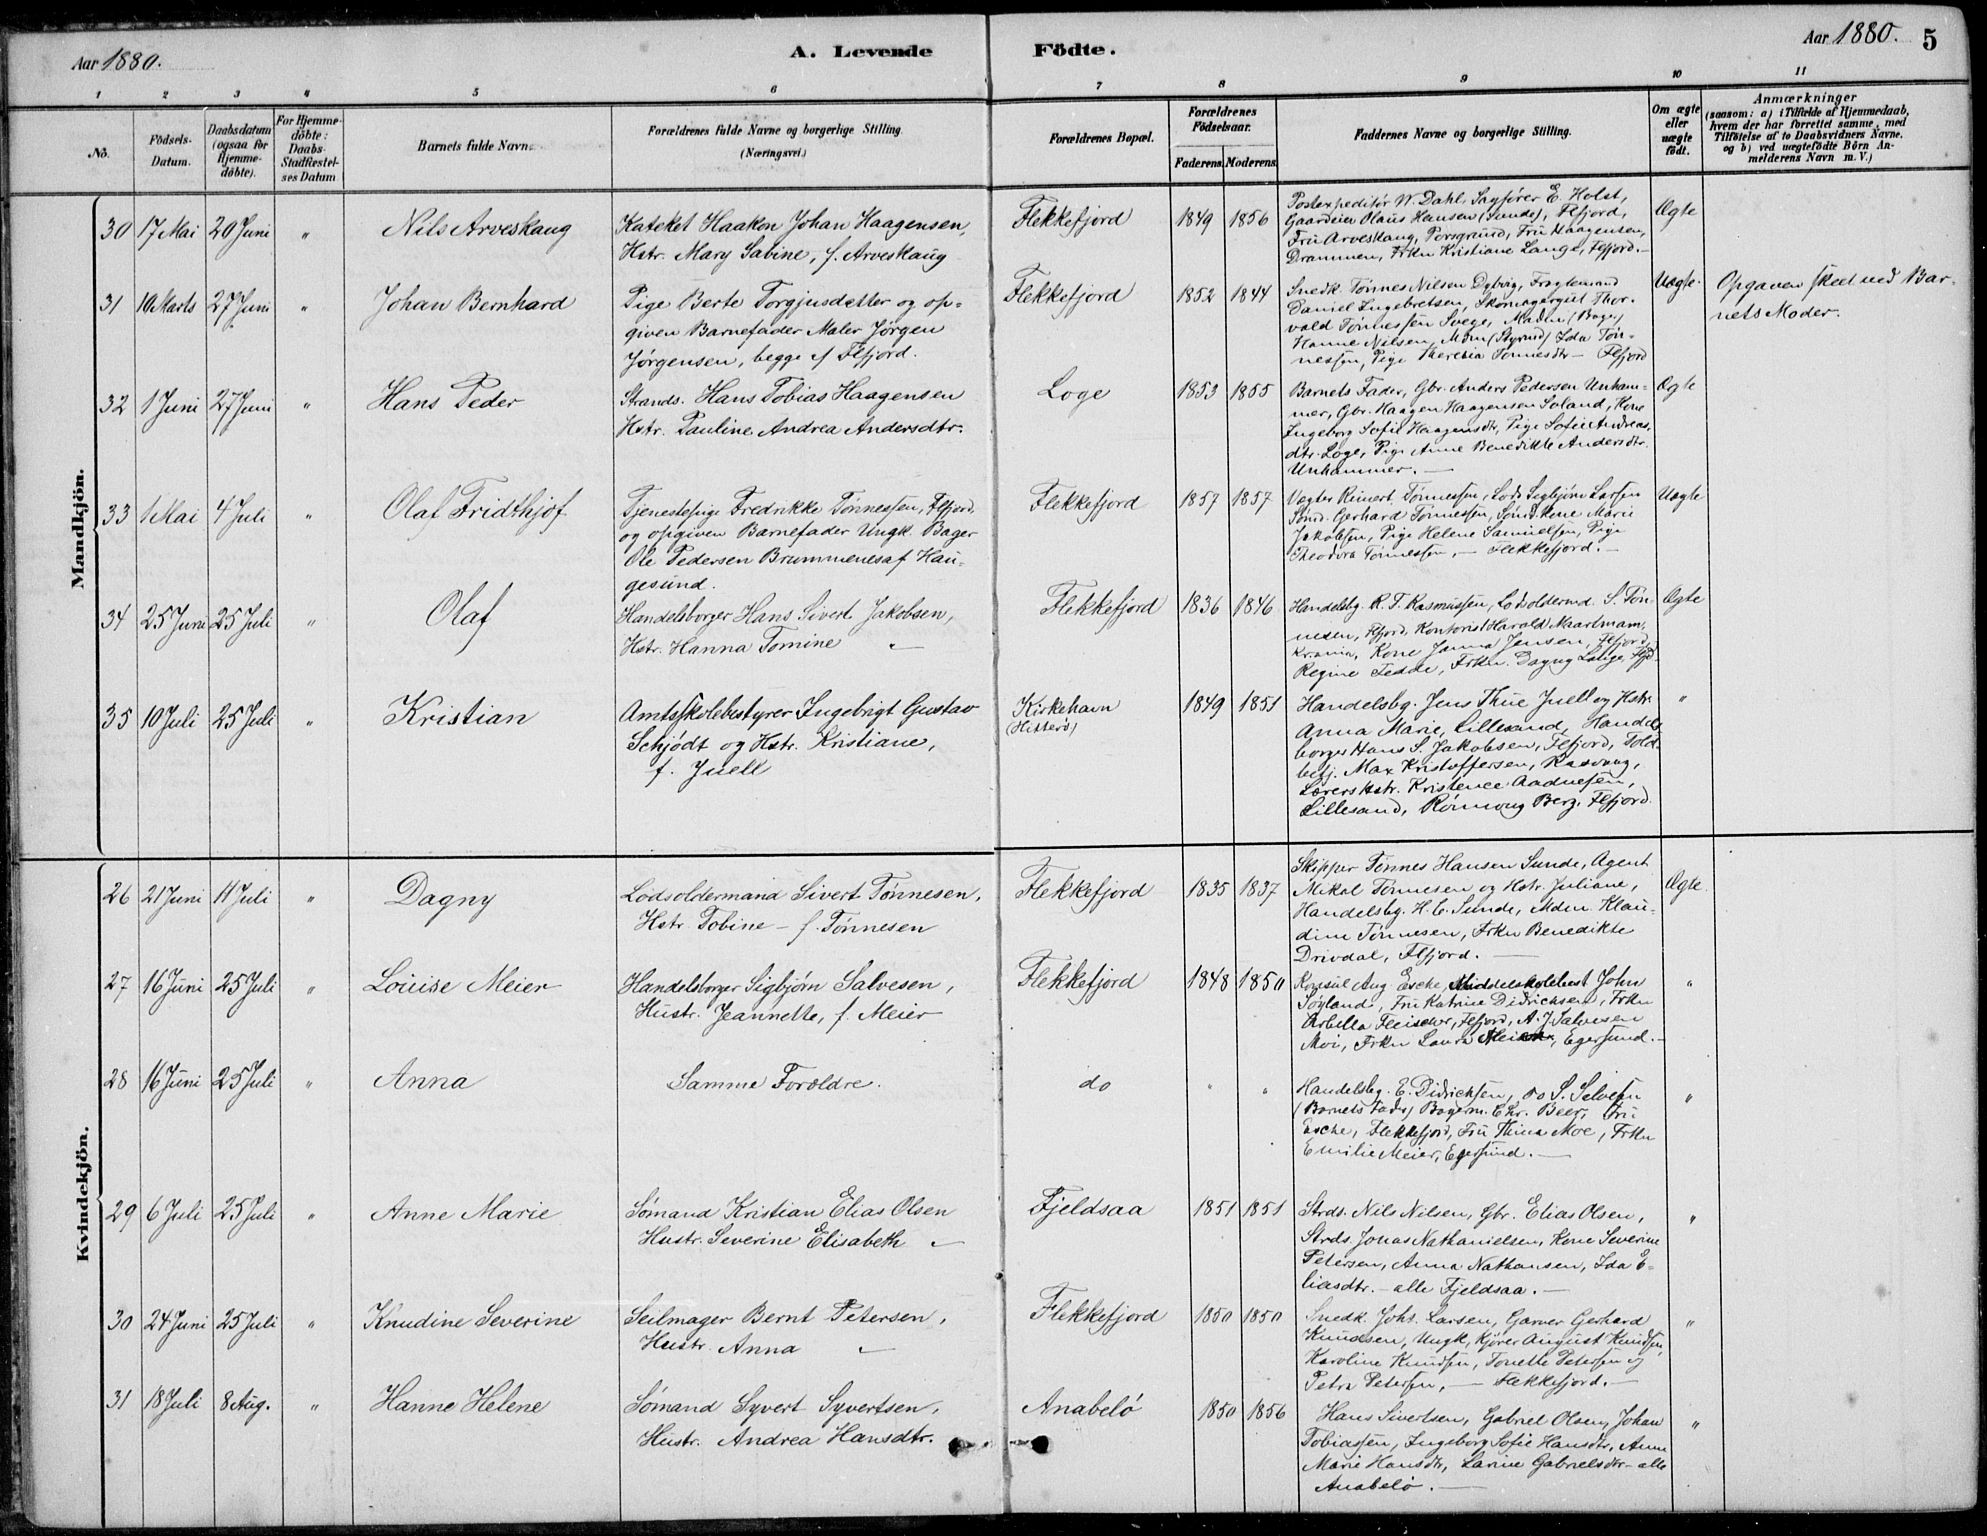 Aar 1880.
A. Levende Födte.
Aar 1880. 5
1 2 3 4 5 6 7 8 9 10 11
No.
Födsels-
Datum.
Daabsdatum
(ogsaa for
Hjemme-
döbte).
For Hjemme-
döbte:
Daabs-
Stadfæstel-
ses Datum
Barnets fulde Navn.
Forældrenes fulde Navne og borgerlige Stilling
(Næringsvei.)
Forældrenes Bopæl.
Forældrenes
Födselsaar.
Faderens. Moderens.
Faddernes Navne og borgerlige Stilling.
Om ægte
eller
uægte
födt.
Anmærkninger
(saasom: a) i Tilfælde af Hjemmedaab,
hvem der har forrettet samme, med
Tilföielse af to Daabsvidners Navne,
og b) ved uægtefödte Börn An-
melderens Navn m. V.)
Mandkjön.
30 17 Mai 20 Juni " Nils Arveskaug
Kateket Haakon Johan Haagensen,
Hstr. Mary Sabine, f. Arveskaug
Flekkefjord 1849 1856
Postexpeditør W. Dahl, Sagfører E. Holst,
Gaardeier Olaus Hansen (Sunde), Flfjord,
Fru Arveskaug, Porsgrund, Fru Haagensen,
Drammen, Frkn Kristiane Lange, Flfjord.
Ægte
31 10 Marts 27 Juni " Johan Bernhard
Pige Berte Torgjusdatter og op-
given Barnefader Maler Jørgen
Jørgensen, begge af Flfjord.
Flekkefjord 1852 1844
Snedk. Tønnes Nilsen Dybvig, Fragtemand
Daniel Ingebretsen, Skomagergut Thor-
vald Tønnessen Svege, Madm (Bager)
Hanne Nilsen, Mdm (Styrmd) Ida Tøn-
nessen, Pige Theresia Tønnesdtr – Flfjord
Uægte.
Opgaven skeet ved Bar-
nets Moder.
32 1 Juni 27 Juni " Hans Peder
Strands. Hans Tobias Haagensen
Hstr. Pauline Andrea Andersdtr.
Loge 1853 1855
Barnets Fader, Gbr. Anders Pedersen Unham-
mer, Gbr. Haagen Haagensen Soland, Kone
Ingeborg Sofie Haagensdtr, Pige Sofie Andreas-
dtr. Loge, Pige Anne Benedikte Andersdtr.
Unhammer. —
Ægte
33 1 Mai 4 Juli " Olaf Fridthjof
Tjenestepige Fredrikke Tønnessen, Flfjord,
og opgiven Barnefader Ungk. Bager
Ole Pedersen Brummenes af Hau-
gesund.
Flekkefjord 1857 1857
Vægter Reinert Tønnessen, Lods Sigbjørn Larssen
Sømd. Gerhard Tønnessen, Sømds Kone Marie
Jakobsen, Pige Helene Samuelsen, Pige
Theodora Tønnessen, — Flekkefjord. —
Uægte
34 25 Juni 25 Juli " Olaf
Handelsborger Hans Sivert Jakobsen,
Hstr. Hanna Tomine "
Flekkefjord 1836 1846
Handelsbg. R. T. Rasmussen, Lodsoldermd. S. Tøn-
nesen, Flfjord, Kontorist Harald Maartmann,
Krania, Kone Janna Jensen, Flfjord,
Regine Tedde, Frkn. Dagny Lange, Flfjd.
Ægte
35 10 Juli 25 Juli " Kristian
Amtsskolebestyrer Ingebrigt Gustav
Schjødt og Hstr. Kristiane,
f. Juell
Kirkehavn
(Hitterø)
1849 1851
Handelsbg. Jens Thue Juell og Hstr.
Anna Marie, Lillesand, Handels-
borger Hans S. Jakobsen, Flfjord, Told-
betj. Max Kristoffersen, Rasvaag,
Lærers Hstr. Kristence Aadnesen,
Lillesand, Rønnaug Berg, Flfjord.
"
Kvindekjön.
26 21 Juni 11 Juli " Dagny
Lodsoldermand Sivert Tønnesen,
Hstr. Tobine – f. Tønnesen
Flekkefjord 1835 1837
Skipper Tønnes Hansen Sunde, Agent
Mikal Tønnesen og Hstr. Juliane,
Handelsbg. H. E. Sunde, Mdm. Klau-
dine Tønnesen, Frkn Benedikte
Drivdal, Flfjord. —
Ægte.
27 16 Juni 25 Juli " Louise Meier
Handelsborger Sigbjørn Salvesen,
Hustr. Jeannette, f. Meier
Flekkefjord 1848 1850
Konsul Aug. Esche, Middelskolebest John
Søyland, Fru Katrine Didrichsen, Frkn
Arbella Fleischer, Flfjord, A. J. Salvesen
Moi, Frkn Laura Meier, Egersund. —
"
28 16 Juni 25 Juli " Anna
Samme Forældre.
do " "
Handelsbg. E. Didrichsen, do S. Salvesen
(Barnets Fader) Bagerm. Chr. Beer, Fru
Esche, Flekkefjord, Fru Thina Moe, Frkn
Emilie Meier, Egersund. —
"
29 6 Juli 25 Juli " Anne Marie
Sømand Kristian Elias Olsen
Hustr. Severine Elisabeth "
Fjeldsaa 1851 1851
Strds. Nils Nilsen, Gbr. Elias Olsen,
Strds. Jonas Nathanielsen, Kone Severine
Petersen, Anna Nathansen, Ida E-
liasdtr. – alle Fjeldsaa. —
"
30 24 Juni 25 Juli " Knudine Severine
Seilmager Bernt Petersen,
Hustr. Anna "
Flekkefjord 1850 1850
Snedk. Johs. Larsen, Garver Gerhard
Knudsen, Ungk. Kjører August Knudsen,
Karoline Knudsen, Tonette Petersen og
Petra Petersen, — Flekkefjord. —
"
31 18 Juli 8 Aug. " Hanne Helene
Sømand Syvert Syvertsen,
Hustr. Andrea Hansdtr.
Anabelø 1850 1856
Hans Sivertsen, Gabriel Olsen, Johan
Tobiassen, Ingeborg Sofie Hansdtr, Anne
Marie Hansdtr, Larine Gabrielsdtr – alle
Anabelø. —
"